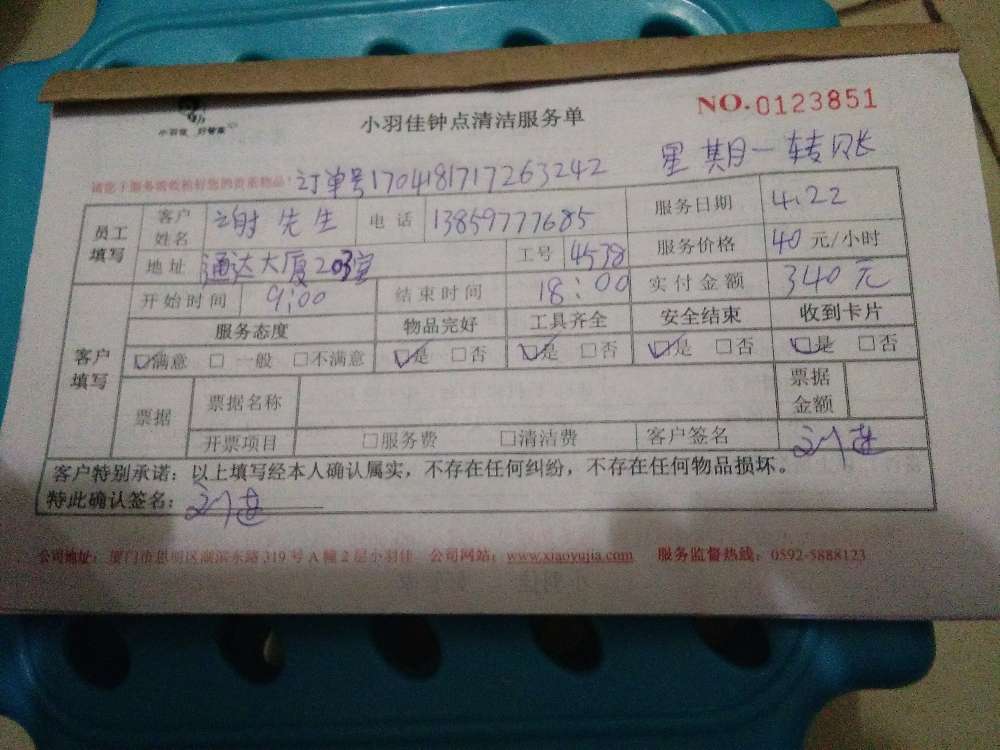 小羽佳 好管家
小羽佳钟点清洁服务单
NO.0123851
请您于服务前收检好您的贵重物品！ 订单号1704181717263242 星期一转账
员工填写 客户姓名 谢先生 电话 13859777685 服务日期 4.22
地址 通达大厦203室 工号 4538 服务价格 40 元/小时
开始时间 9:00 结束时间 18:00 实付金额 340元
客户填写 服务态度 物品完好 工具齐全 安全结束 收到卡片
☑满意 □一般 □不满意 ☑是 □否 ☑是 □否 ☑是 □否 ☑是 □否
票据 票据名称 票据金额
开票项目 □服务费 □清洁费 客户签名
客户特别承诺：以上填写经本人确认属实，不存在任何纠纷，不存在任何物品损坏。
特此确认签名：
公司地址：厦门市思明区湖滨东路319号A幢2层小羽佳 公司网站：www.xiaoyujia.com 服务监督热线：0592-5888123